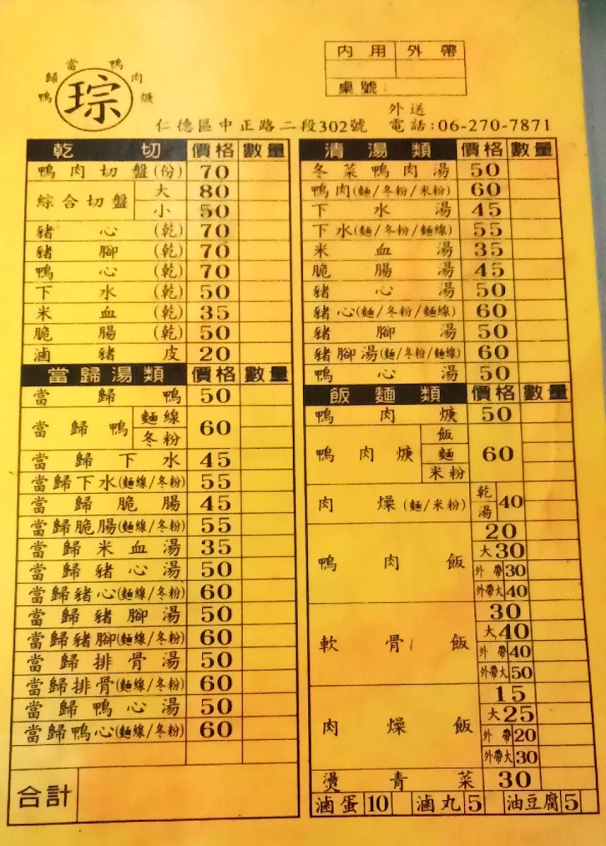 當歸鴨 鴨肉焿
琮
內用 外帶
桌號:
外送
仁德區中正路二段302號 電話:06-270-7871
乾切 價格 數量
鴨肉切盤(份) 70
綜合切盤 大 80
小 50
豬心(乾) 70
豬腳(乾) 70
鴨心(乾) 70
下水(乾) 50
米血(乾) 35
脆腸(乾) 50
滷豬皮 20
當歸湯類 價格 數量
當歸鴨 50
當歸鴨 麵線 冬粉 60
當歸下水 45
當歸下水(麵線/冬粉) 55
當歸脆腸 45
當歸脆腸(麵線/冬粉) 55
當歸米血湯 35
當歸豬心湯 50
當歸豬心(麵線/冬粉) 60
當歸豬腳湯 50
當歸豬腳(麵線/冬粉) 60
當歸排骨湯 50
當歸排骨(麵線/冬粉) 60
當歸鴨心湯 50
當歸鴨心(麵線/冬粉) 60
合計
清湯類 價格 數量
冬菜鴨肉湯 50
鴨肉(麵/冬粉/米粉) 60
下水湯 45
下水(麵/冬粉/麵線) 55
米血湯 35
脆腸湯 45
豬心湯 50
豬心(麵/冬粉/麵線) 60
豬腳湯 50
豬腳湯(麵/冬粉/麵線) 60
鴨心湯 50
飯麵類 價格 數量
鴨肉焿 50
鴨肉焿 飯 麵 米粉 60
肉燥(麵/米粉) 乾 湯 40
鴨肉飯 20
大30
外帶30
外帶大40
軟骨飯 30
大40
外帶40
外帶大50
肉燥飯 15
大25
外帶20
外帶大30
燙青菜 30
滷蛋 10 滷丸 5 油豆腐 5